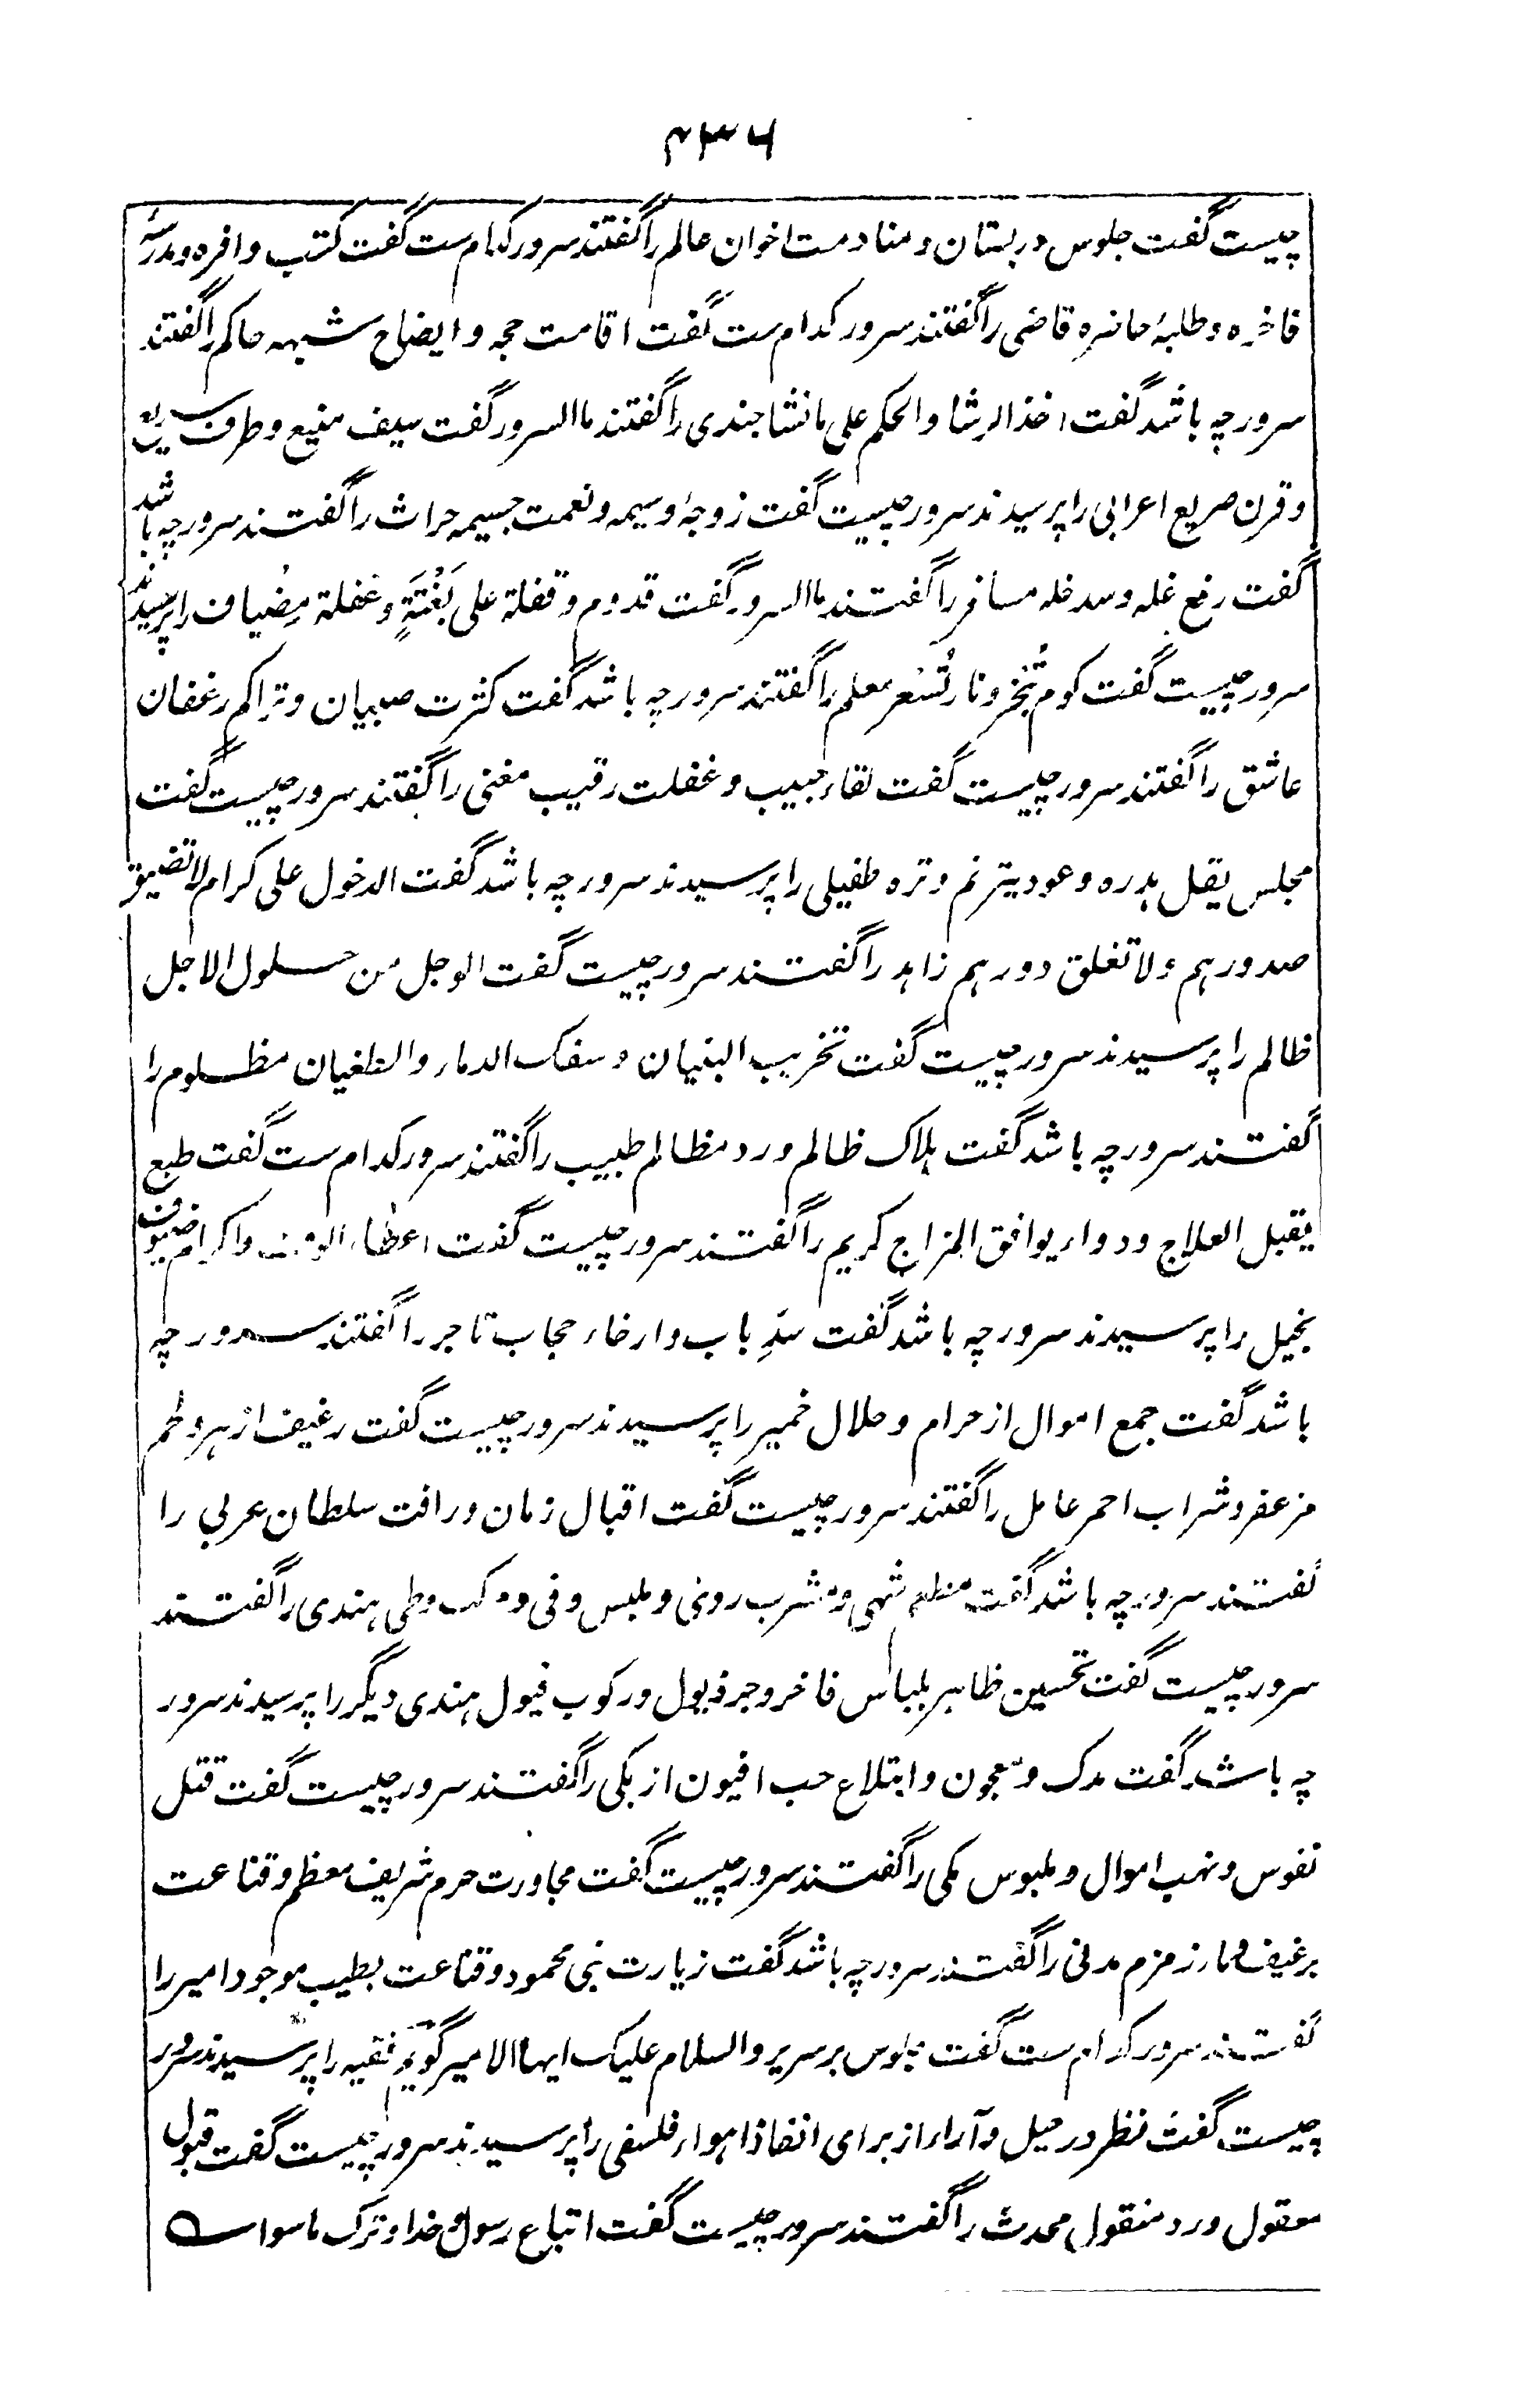 ۴۳۶
چیست گفت جلوس در بستان و منادمت اخوان عالم را گفتند سرور کدام ست گفت کتب وافره و مدرسهٔ
فاخره و طلبهٔ حاضره قاضی را گفتند سرور کدام ست گفت اقامت حجه و ایضاح شبهه حاکم را گفتند
سرور چه باشد گفت اخذ الرشا و الحکم علی ما نشا جندی را گفتند ما السرور گفت سیف منیع و طرف سریع
و قرن صریع اعرابی را پرسیدند سرور چیست گفت زوجهٔ وسیمه و نعمت جسیمه حراث را گفتند سرور چه باشد
گفت رفع غله و سد خله مسافر را گفتند ما السرور گفت قدوم و قفلة علی بَغْتَةٍ و غفلة مِضْیاف را پرسیدند
سرور چیست گفت کوم تُنْحَر و نار تُسْعَر معلم را گفتند سرور چه باشد گفت کثرت صبیان و تراکم رغفان
عاشق را گفتند سرور چیست گفت لقاء حبیب و غفلت رقیب مغنی را گفتند سرور چیست گفت
مجلس یقل هدره و عود یترنم وتره طفیلی را پرسیدند سرور چه باشد گفت الدخول علی کرام لا تضیق
صدورهم و لا تغلق دورهم زاهد را گفتند سرور چیست گفت الوجل من حلول الاجل
ظالم را پرسیدند سرور چیست گفت تخریب البنیان و سفک الدماء و الطغیان مظلوم را
گفتند سرور چه باشد گفت هلاک ظالم و رد مظالم طبیب را گفتند سرور کدام ست گفت طبع
یقبل العلاج و دواء یوافق المزاج کریم را گفتند سرور چیست گفت اعطاء و اکرام ضیوف
بخیل را پرسیدند سرور چه باشد گفت سَدِّ باب و ارخاء حجاب تاجر را گفتند سرور چه
باشد گفت جمع اموال از حرام و حلال خمیر را پرسیدند سرور چیست گفت رغیف ازهر و لحم
مزعفر و شراب احمر عامل را گفتند سرور چیست گفت اقبال زمان و رافت سلطان عربی را
گفتند سرور چه باشد گفت مطعم شهی و مشرب روی و ملبس وفی و مرکب وطی هندی را گفتند
سرور چیست گفت تحسین ظاهر بلباس فاخر و جر ذیول و رکوب فیول هندی دیگر را پرسیدند سرور
چه باشد گفت مدک و معجون و ابتلاع حب افیون ازبکی را گفتند سرور چیست گفت قتل
نفوس و نهب اموال و ملبوس مکی را گفتند سرور چیست گفت مجاورت حرم شریف معظم و قناعت
برغیف و ماء زمزم مدنی را گفتند سرور چه باشد گفت زیارت نبی محمود و قناعت بطیب موجود امیر را
گفتند سرور کدام ست گفت جلوس بر سریر و السلام علیک ایها الامیر گویم فقیه را پرسیدند سرور
چیست گفت نظر در حیل و آراء از برای انفاذ اهواء فلسفی را پرسیدند سرور چیست گفت قبول
معقول و رد منقول محدث را گفتند سرور چیست گفت اتباع رسول خدا و ترک ما سواه